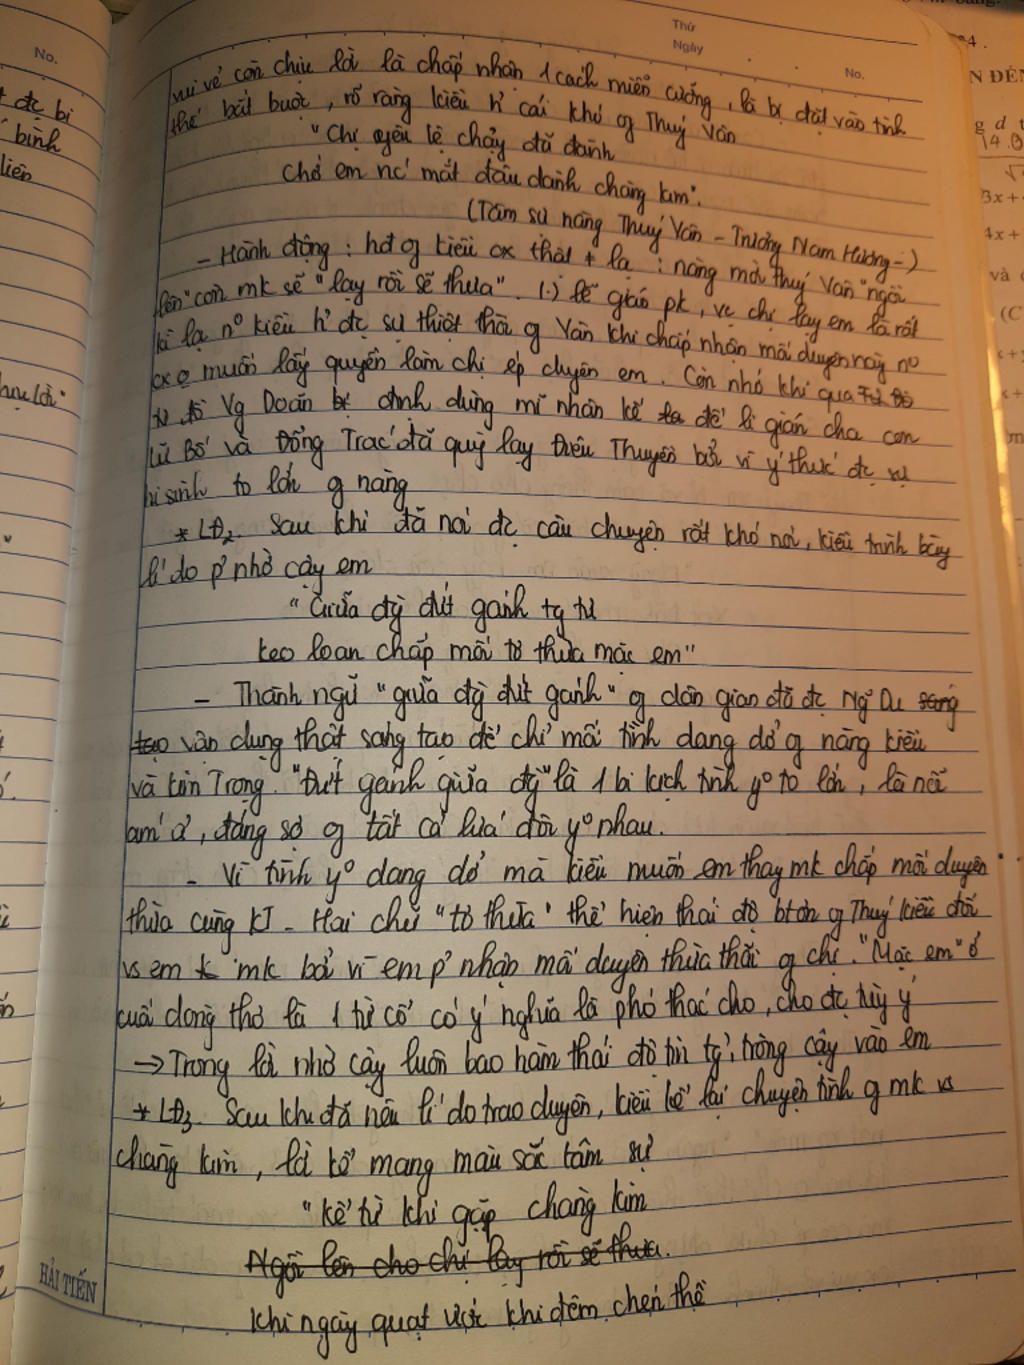 Thứ
Ngày
No.
No.
vui vẻ còn chịu lời là chấp nhận 1 cách miễn cưỡng, là bị đặt vào tình
thế bắt buộc, rõ ràng kiều h' cái khó g Thuý Vân
"Chị yêu lệ chảy đã đành
Chớ em nc' mắt đâu dành chàng kim".
(Tâm sự nàng Thuý Vân - Trương Nam Hương -)
- Hành động : hđ g kiều cx thật + lạ : nàng mời thuý Vân "ngồi
lên" còn mk sẽ "lạy rồi sẽ thưa". (.) lễ giáo pk, vc chị lạy em là rất
kì lạ nº kiều h' đc sự thiệt thòi g Vân khi chấp nhận mối duyên này nº
cx o muốn lấy quyền làm chị ép duyên em. Còn nhớ khi qua Tử Đồ
Tư đồ Vg Doãn bị định dùng mĩ nhân kế để li gián cha con
Lữ Bố và Đổng Trác đã quỳ lạy Điêu Thuyền bởi vì ý thức đc sự
hi sinh to lớn g nàng
* LĐ2. Sau khi đã nói đc câu chuyện rất khó nói, kiều trình bày
lí do p' nhờ cậy em
"Giữa đg đứt gánh tg tư
keo loan chắp mối tơ thừa mặc em"
- Thành ngữ "giữa đg đứt gánh" g dân gian đã đc Ng Du sáng
tạo vận dụng thật sáng tạo để chỉ mối tình dang dở g nàng kiều
và kim Trọng. "Đứt gánh giữa đg" là 1 bi kịch tình yº to lớn, là nỗi
ám ả, đáng sợ g tất cả lứa đôi yº nhau.
- Vì tình yº dang dở mà kiều muốn em thay mk chắp mối duyên
thừa cùng KT - Hai chữ "tơ thừa" thể hiện thái độ btơn g Thuý kiều đối
vs em k mk bởi vì em p' nhận mối duyên thừa thãi g chị. "Mặc em" ở
cuối dòng thơ là 1 từ cổ có ý nghĩa là phó thác cho, cho đc tùy ý
→ Trong lời nhờ cậy luôn bao hàm thái độ tin tg, trông cậy vào em
* LĐ3. Sau khi đã nêu lí do trao duyên, kiều kể lại chuyện tình g mk vs
chàng kim, lời kể mang màu sắc tâm sự
"kể từ khi gặp chàng kim
Ngồi lên cho chị lạy rồi sẽ thưa.
Khi ngày quạt ước khi đêm chén thề
HẢI TIẾN